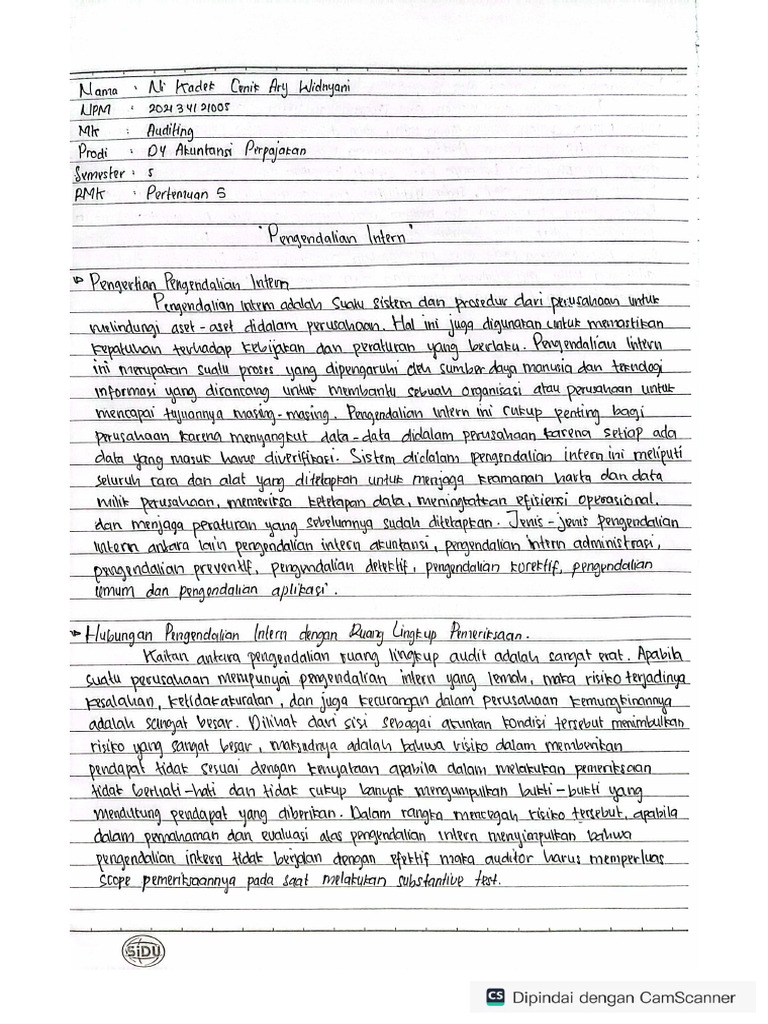 Nama : Ni Kadek Cenik Ary Widnyani
NPM : 2021341 21005
Mk : Auditing
Prodi : D4 Akuntansi Perpajakan
Semester : 5
RMK : Pertemuan 5
"Pengendalian Intern"
Pengertian Pengendalian Intern
Pengendalian intern adalah suatu sistem dan prosedur dari perusahaan untuk
melindungi aset-aset didalam perusahaan. Hal ini juga digunakan untuk memastikan
kepatuhan terhadap kebijakan dan peraturan yang berlaku. Pengendalian intern
ini merupakan suatu proses yang dipengaruhi oleh sumber daya manusia dan teknologi
informasi yang dirancang untuk membantu sebuah organisasi atau perusahaan untuk
mencapai tujuannya masing-masing. Pengendalian intern ini cukup penting bagi
perusahaan karena menyangkut data-data didalam perusahaan karena setiap ada
data yang masuk harus diverifikasi. Sistem didalam pengendalian intern ini meliputi
seluruh cara dan alat yang ditetapkan untuk menjaga keamanan harta dan data
milik perusahaan, memeriksa ketetapan data, meningkatkan efisiensi operasional,
dan menjaga peraturan yang sebelumnya sudah ditetapkan. Jenis-jenis pengendalian
intern antara lain pengendalian intern akuntansi, pengendalian intern administrasi,
pengendalian preventif, pengendalian detektif, pengendalian korektif, pengendalian
umum dan pengendalian aplikasi.
Hubungan Pengendalian Intern dengan Ruang Lingkup Pemeriksaan.
Kaitan antara pengendalian ruang lingkup audit adalah sangat erat. Apabila
suatu perusahaan mempunyai pengendalian intern yang lemah, maka risiko terjadinya
kesalahan, ketidakakuratan, dan juga kecurangan dalam perusahaan kemungkinannya
adalah sangat besar. Dilihat dari sisi sebagai akuntan kondisi tersebut menimbulkan
risiko yang sangat besar, maksudnya adalah bahwa risiko dalam memberikan
pendapat tidak sesuai dengan kenyataan apabila dalam melakukan pemeriksaan
tidak berhati-hati dan tidak cukup banyak mengumpulkan bukti-bukti yang
mendukung pendapat yang diberikan. Dalam rangka mencegah risiko tersebut, apabila
dalam pemahaman dan evaluasi atas pengendalian intern menyimpulkan bahwa
pengendalian intern tidak berjalan dengan efektif maka auditor harus memperluas
scope pemeriksaannya pada saat melakukan substantive test.
SiDU
CS Dipindai dengan CamScanner